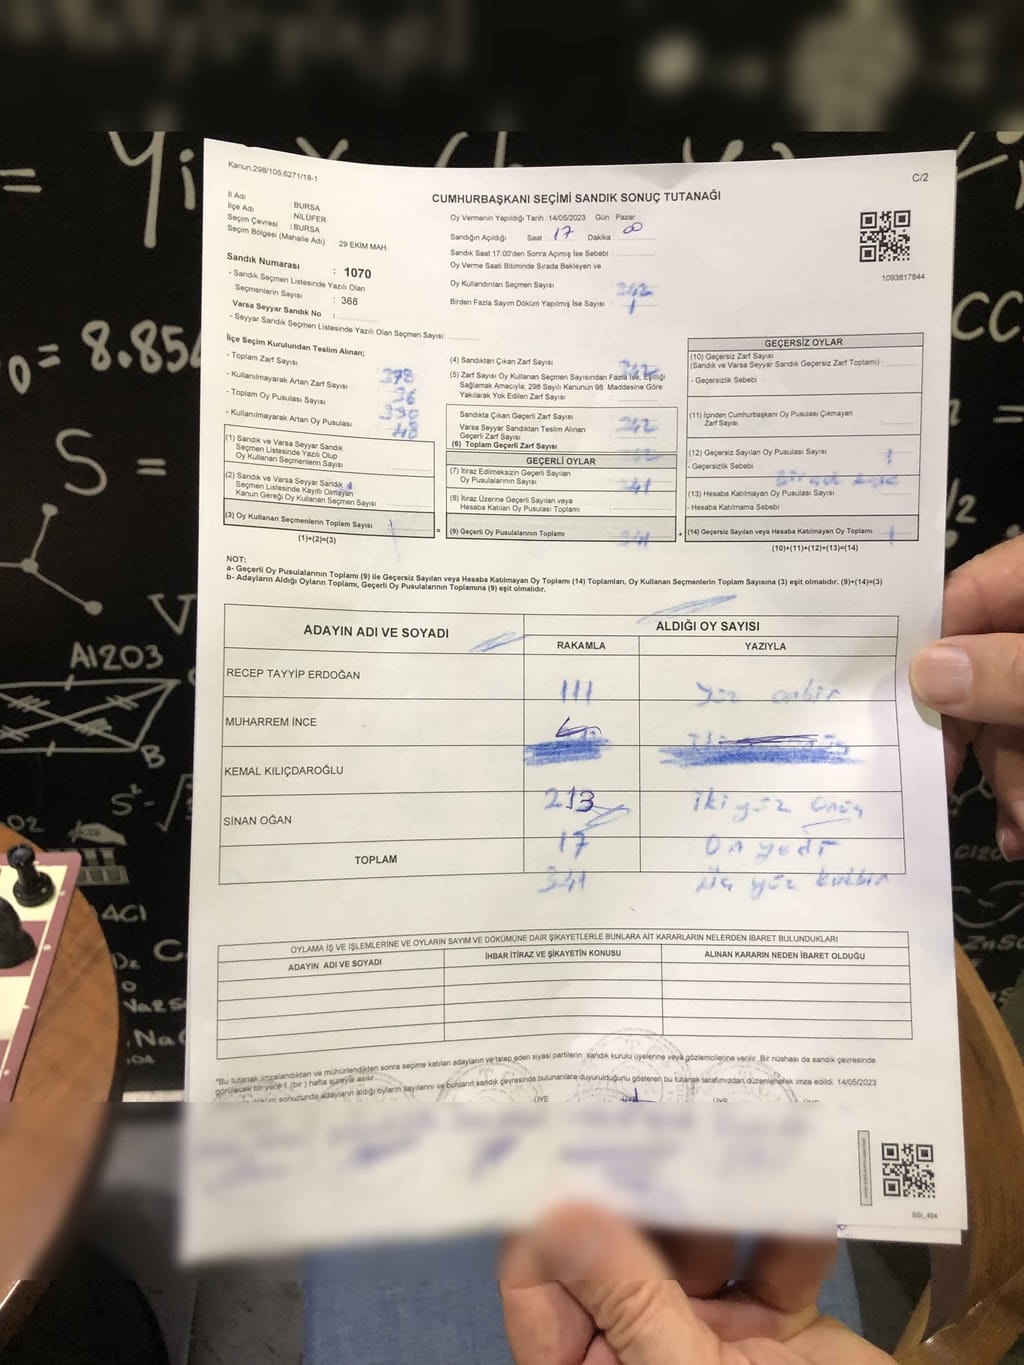 Kanun,298/105,6271/18-1
C/2
CUMHURBAŞKANI SEÇİMİ SANDIK SONUÇ TUTANAĞI
İl Adı : BURSA
İlçe Adı : NİLÜFER
Seçim Çevresi : BURSA
Seçim Bölgesi (Mahalle Adı) : 29 EKİM MAH.
Sandık Numarası : 1070
- Sandık Seçmen Listesinde Yazılı Olan
Seçmenlerin Sayısı : 368
Varsa Seyyar Sandık No :
- Seyyar Sandık Seçmen Listesinde Yazılı Olan Seçmen Sayısı
Oy Vermenin Yapıldığı Tarih : 14/05/2023 Gün : Pazar
Sandığın Açıldığı Saat 17 Dakika : 00
Sandık Saat 17:00'den Sonra Açımış İse Sebebi :
Oy Verme Saati Bitiminde Sırada Bekleyen ve
Oy Kullandırılan Seçmen Sayısı 342
Birden Fazla Sayım Döküm Yapılmış İse Sayısı 1
1093817844
İlçe Seçim Kurulundan Teslim Alınan;
- Toplam Zarf Sayısı 378
- Kullanılmayarak Artan Zarf Sayısı 36
- Toplam Oy Pusulası Sayısı 390
- Kullanılmayarak Artan Oy Pusulası 48
(1) Sandık ve Varsa Seyyar Sandık
Seçmen Listesinde Yazılı Olup
Oy Kullanan Seçmenlerin Sayısı
(2) Sandık ve Varsa Seyyar Sandık
Seçmen Listesinde Kayıtlı Olmayan
Kanun Gereği Oy Kullanan Seçmen Sayısı
(3) Oy Kullanan Seçmenlerin Toplam Sayısı
(1)+(2)=(3)
=
(4) Sandıktan Çıkan Zarf Sayısı 342
(5) Zarf Sayısı Oy Kullanan Seçmen Sayısından Fazla İse, Eşitliği
Sağlamak Amacıyla, 298 Sayılı Kanunun 98. Maddesine Göre
Yakılarak Yok Edilen Zarf Sayısı
Sandıkta Çıkan Geçerli Zarf Sayısı 342
Varsa Seyyar Sandıktan Teslim Alınan
Geçerli Zarf Sayısı
(6) Toplam Geçerli Zarf Sayısı
GEÇERLİ OYLAR
(7) İtiraz Edilmeksizin Geçerli Sayılan
Oy Pusulasının Sayısı 341
(8) İtiraz Üzerine Geçerli Sayılan veya
Hesaba Katılan Oy Pusulası Toplamı
(9) Geçerli Oy Pusulalarının Toplamı 341
+
GEÇERSİZ OYLAR
(10) Geçersiz Zarf Sayısı
(Sandık ve Varsa Seyyar Sandık Geçersiz Zarf Toplamı)
- Geçersizlik Sebebi :
(11) İçinden Cumhurbaşkanı Oy Pusulası Çıkmayan
Zarf Sayısı
(12) Geçersiz Sayılan Oy Pusulası Sayısı 1
- Geçersizlik Sebebi
(13) Hesaba Katılmayan Oy Pusulası Sayısı
- Hesaba Katılmama Sebebi
(14) Geçersiz Sayılan veya Hesaba Katılmayan Oy Toplamı 1
(10)+(11)+(12)+(13)=(14)
NOT:
a- Geçerli Oy Pusulalarının Toplamı (9) ile Geçersiz Sayılan veya Hesaba Katılmayan Oy Toplamı (14) Toplamları, Oy Kullanan Seçmenlerin Toplam Sayısına (3) eşit olmalıdır. (9)+(14)=(3)
b- Adayların Aldığı Oyların Toplamı, Geçerli Oy Pusulalarının Toplamına (9) eşit olmalıdır.
ADAYIN ADI VE SOYADI
ALDIĞI OY SAYISI
RAKAMLA YAZIYLA
RECEP TAYYİP ERDOĞAN 111 Yüz onbir
MUHARREM İNCE
KEMAL KILIÇDAROĞLU 213 İki yüz onüç
SİNAN OĞAN 17 On yedi
TOPLAM 341 Üç yüz kırkbir
OYLAMA İŞ VE İŞLEMLERİNE VE OYLARIN SAYIM VE DÖKÜMÜNE DAİR ŞİKAYETLERLE BUNLARA AİT KARARLARIN NELERDEN İBARET BULUNDUKLARI
ADAYIN ADI VE SOYADI İHBAR İTİRAZ VE ŞİKAYETİN KONUSU ALINAN KARARIN NEDEN İBARET OLDUĞU
*Bu tutanak imzalandıktan ve mühürlendikten sonra seçime katılan adayların ve talep eden siyasi partilerin sandık kurulu üyelerine veya gözlemcilerine verilir. Bir nüshası da sandık çevresinde
görülecek bir yere 1 (bir) hafta süreyle asılır.
döküm sonucunda adayların aldığı oyların sayılarını ve bunların sandık çevresinde bulunanlara duyurulduğunu gösteren bu tutanak tarafımızdan düzenlenerek imza edildi. 14/05/2023
ÜYE ÜYE ÜYE
SSİ_404
= 8.854
S =
Al2O3
B
V
4Cl
Na2S